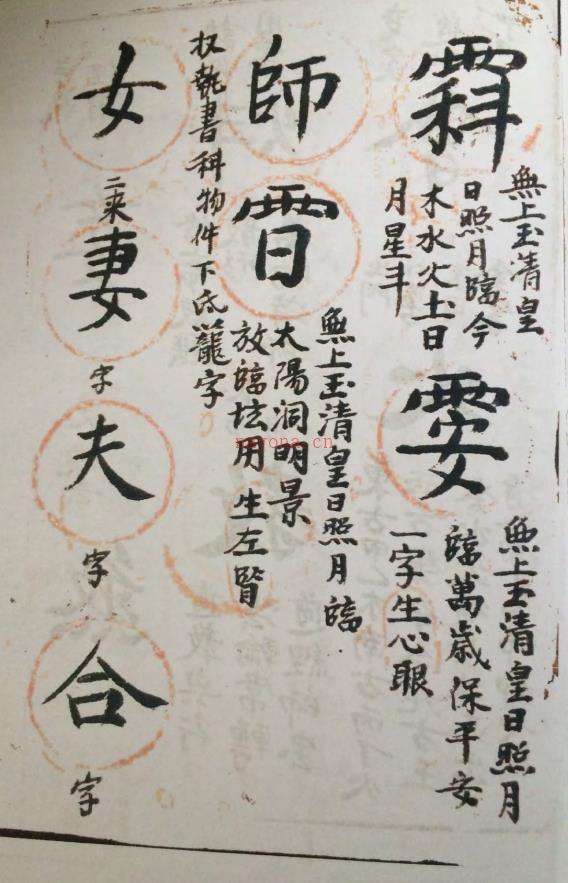 無上玉清皇
日照月臨今
木水火土日
月星斗
無上玉清皇日照月
臨萬歲保平安
一字生心眼
師
無上玉清皇日照月臨
太陽洞明景
放臨坛用生左
執書科物件下底籠字
女
二来
妻
字
夫
字
合
字
nayona.cn